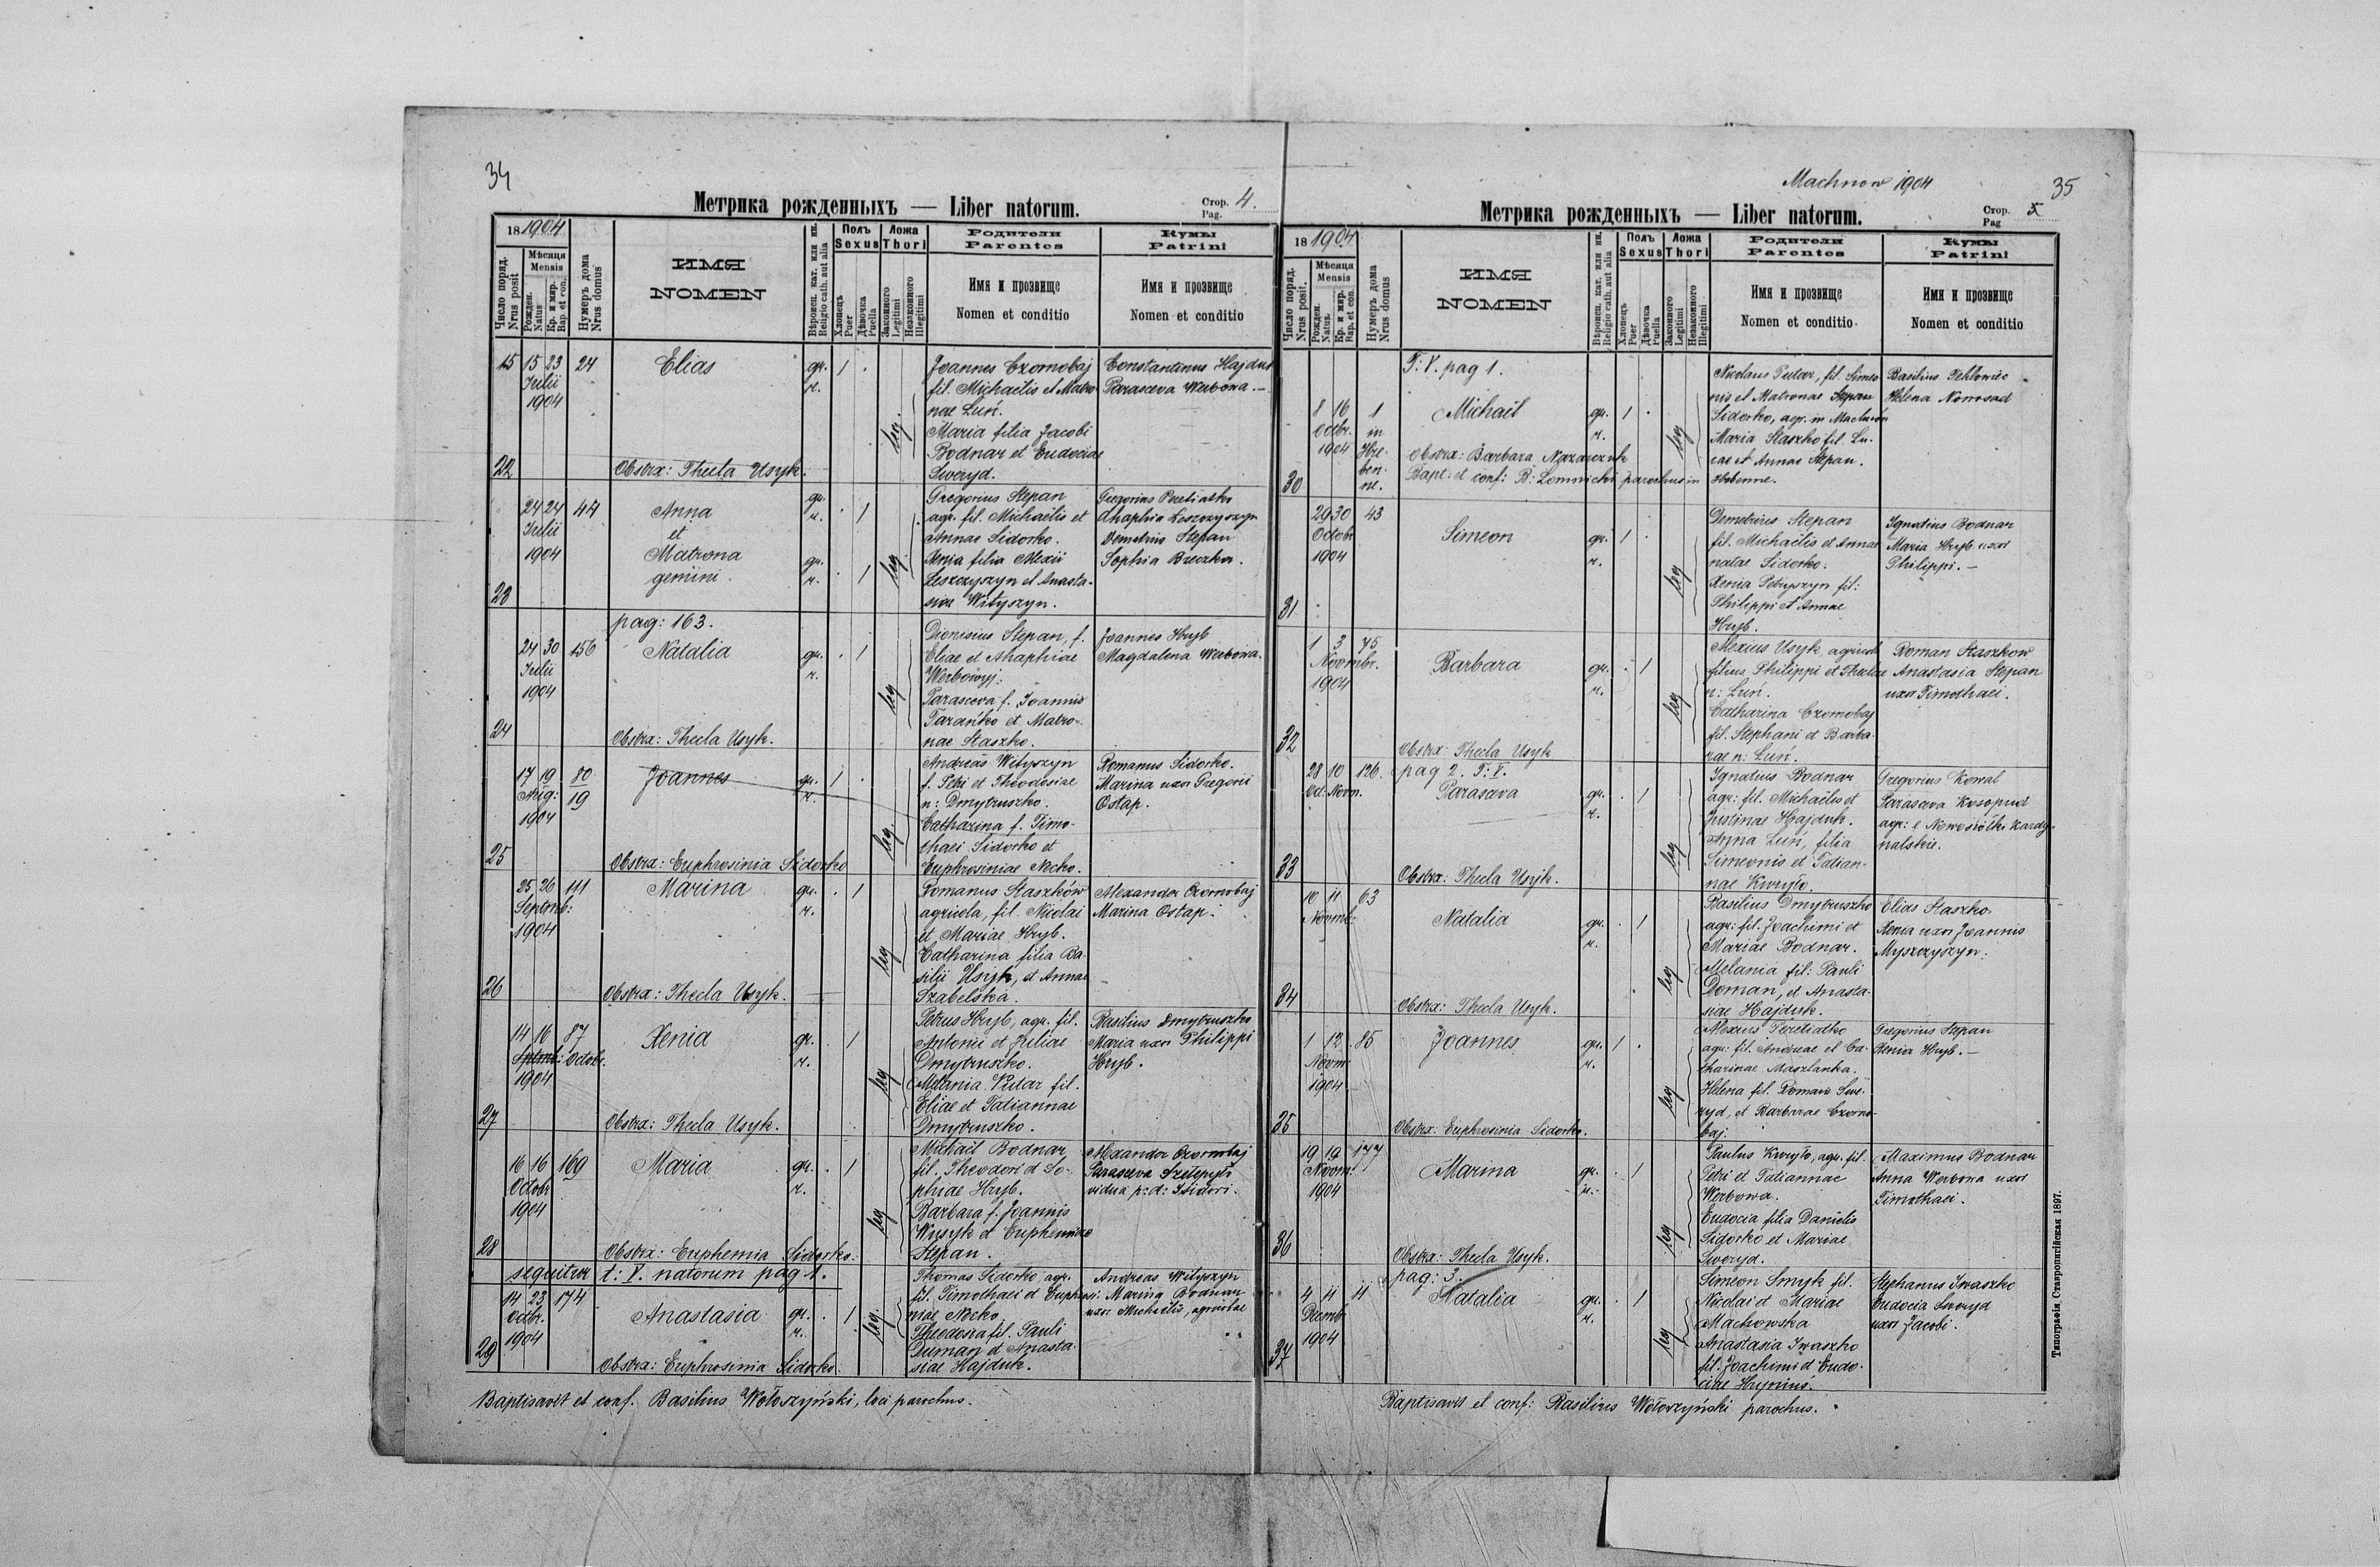 34
Метрика рожденныхъ — Liber natorum.
Стор. Pag. 4.
18 1904
Число поряд. Nrus posit
Мѣсяця Mensis
Рожден. Natus
Кр. и мир. Bap. et con.
Нумеръ дома Nrus domus
ИМЯ
NOMEN
Вѣроисп. кат. или ин. Religio cath. aut alia
Полъ Sexus
Хлопецъ Puer
Дѣвочка Puella
Ложа Thori
Законного Legitimi
Незаконного Illegitimi
Родители
Parentes
Имя и прозвище
Nomen et conditio
Кумы
Patrini
Имя и прозвище
Nomen et conditio
15 23 24 Elias gr. 1 Joannes Czornobaj Constantinus Hajduk
Julii r. fil. Michaelis et Matro- Parasceva Werbowa.—
1904 nae Luń.
leg Maria filia Jacobi
Bodnar et Eudociae
22 Obstrx: Thecla Usyk. Sweryd.
24 24 44 Anna gr. r. 1 Gregorius Stepan Gregorius Peretiatko
Julii et agr. fil. Michaelis et Ahaphia Leszczyszyn
1904 Matrona gr. Annae Sidorko. Demetrius Stepan
gemini. r. 1 leg Xenia filia Alexii Sophia Breczka.
Leszczyszyn et Anasta-
23 siae Wityszyn.
pag: 163.
24 30 156 Natalia gr. 1 Dionisius Stepan, f. Joannes Hryb
Julii r. Eliae et Ahaphiae Magdalena Werbowa.
1904 Werbowyj.
leg Parasceva f. Joannis
Tarańko et Matro-
24 Obstrx: Thecla Usyk. nae Staszko.
17 19 80 Joannes gr. 1 Andreas Wityszyn Romanus Sidorko.
Aug: 19 r. f. Petri et Theodosiae Marina uxor Gregorii
1904 n: Dmytruszko. Ostap.
leg Catharina f. Timo-
thaei Sidorko et
25 Obstrx: Euphrosinia Sidorko Euphrosiniae Necko.
25 26 111 Marina gr. 1 Romanus Staszków Alexander Czornobaj
Septmb: r. agricola, fil. Nicolai Marina Ostap.
1904 et Mariae Hryb.
leg Catharina filia Ba-
silii Usyk, et Annae
26 Obstrx: Thecla Usyk. Szabelska.
14 16 87 Xenia gr. 1 Petrus Hryb, agr. fil. Basilius Dmytruszko
Septmb: Octobr. r. Antonii et Juliae Maria uxor Philippi
1904 Dmytruszko. Hryb.
leg Melania Putar fil.
Eliae et Tatiannae
27 Obstrx: Thecla Usyk. Dmytruszko.
16 16 169 Maria gr. 1 Michail Bodnar, Alexander Czornobaj
Octobr r. fil. Theodori et So- Parasceva
1904 phiae Hryb. vidua p: d: Isidori.
leg Barbara f. Joannis
Wusyk et Euphemiae
28 Obstrx: Euphemia Sidorko. Stepan.
sequitur t: V. natorum pag 1.
14 23 174 Anastasia gr. 1 Thomas Sidorko, agr. Andreas Wityszyn
Octbr. r. fil. Timothaei et Euphrosi- Marina Bodnar
1904 leg niae Necko. uxor Michaelis, agricolae
Theodosia fil. Pauli
Duman et Anasta-
29 Obstrx: Euphrosinia Sidorko. siae Hajduk.
Baptisavit et conf. Basilius Wołoszyński, loci parochus.
Machnow 1904 35
Метрика рожденныхъ — Liber natorum.
Стор. Pag 5
18 1904
Число поряд. Nrus posit.
Мѣсяця Mensis
Рожден. Natus.
Кр. и мир. Bap. et con.
Нумеръ дома Nrus domus
ИМЯ
NOMEN
Вѣроисп. кат. или ин. Religio cath. aut alia
Полъ Sexus
Хлопецъ Puer
Дѣвочка Puella
Ложа Thori
Законного Legitimi
Незаконного Illegitimi
Родители
Parentes
Имя и прозвище
Nomen et conditio
Кумы
Patrini
Имя и прозвище
Nomen et conditio
T: V. pag 1.
8 16 1 Michail gr. 1 Nicolaus Putar, fil. Simeo- Basilius
Octbr. in r. nis et Matronae Stepan Helena Nowosad
1904 Hre- leg Sidorko, agr. in Machnów
ben- Obstrx: Barbara Nazarczuk Maria Staszko fil. Lu-
ne. cae et Annae Stepan.
30 Bapt: et conf: B: Lomnicki parochus in Hrebenne.
29 30 43 Simeon gr. 1 Demetrius Stepan Ignatius Bodnar
Octobr r. fil. Michaelis et Annae Maria Hryb uxor
1904 natae Sidorko. Philippi.—
leg Xenia Petryszyn fil:
Philippi et Annae
31 Hryb.
1 3 45 Barbara gr. 1 Alexius Usyk agricola Roman Staszkow
Novmbr. r. filius Philippi et Theclae Anastasia Stepan
1904 n: Luń. uxor Timothaei.
leg Catharina Czornobaj
fil. Stephani et Barba-
32 Obstrx: Thecla Usyk rae n: Luń.
pag 2. T: V.
28 10 126. Parasceva gr. 1 Ignatius Bodnar Gregorius Kowal
Oct. Novm. r. agr: fil. Michaelis et Parasceva Kosopud
Justinae Hajduk. agr: e Nowosiółki Kardy-
leg Anna Luń, filia nalskie.
Simeonis et Tatian-
33 Obstrx: Thecla Usyk. nae Kuryło.
10 11 63 Natalia gr. 1 Basilius Dmytruszko Elias Staszko
Novmb: r. agr: fil. Joachimi et Xenia uxor Joannis
Mariae Bodnar. Myszczyszyn.
leg Melania fil: Pauli
Doman, et Anasta-
34 Obstrx: Thecla Usyk. siae Hajduk.
1 12 85 Joannes gr. 1 Alexius Peretiatko Gregorius Stepan
Novm r. agr: fil. Andreae et Ca- Xenia Hryb.—
1904 tharinae Maszlanka.
leg Helena fil. Romani Swe-
ryd, et Barbarae Czorno-
35 Obstrx: Euphrosinia Sidorko. baj.
19 19 177 Marina gr. 1 Paulus Kuryło, agr. fil. Maximus Bodnar
Novm. r. Petri et Tatiannae Anna Werbowa uxor
1904 Werbowa. Timothaei.
leg Eudocia filia Danielis
Sidorko et Mariae
36 Obstrx: Thecla Usyk. Sweryd.
pag: 3.
4 11 11 Natalia gr. 1 Simeon Smyk fil. Stephanus Iwaszko
Dcmb. r. Nicolai et Mariae Eudocia Sweryd
1904 Machowska uxor Jacobi.
leg Anastasia Iwaszko
fil. Joachimi et Eudo-
37 ciae Hryniuś.
Baptisavit et conf: Basilius Wołoszyński parochus.
Типографія Ставропигійская 1897.